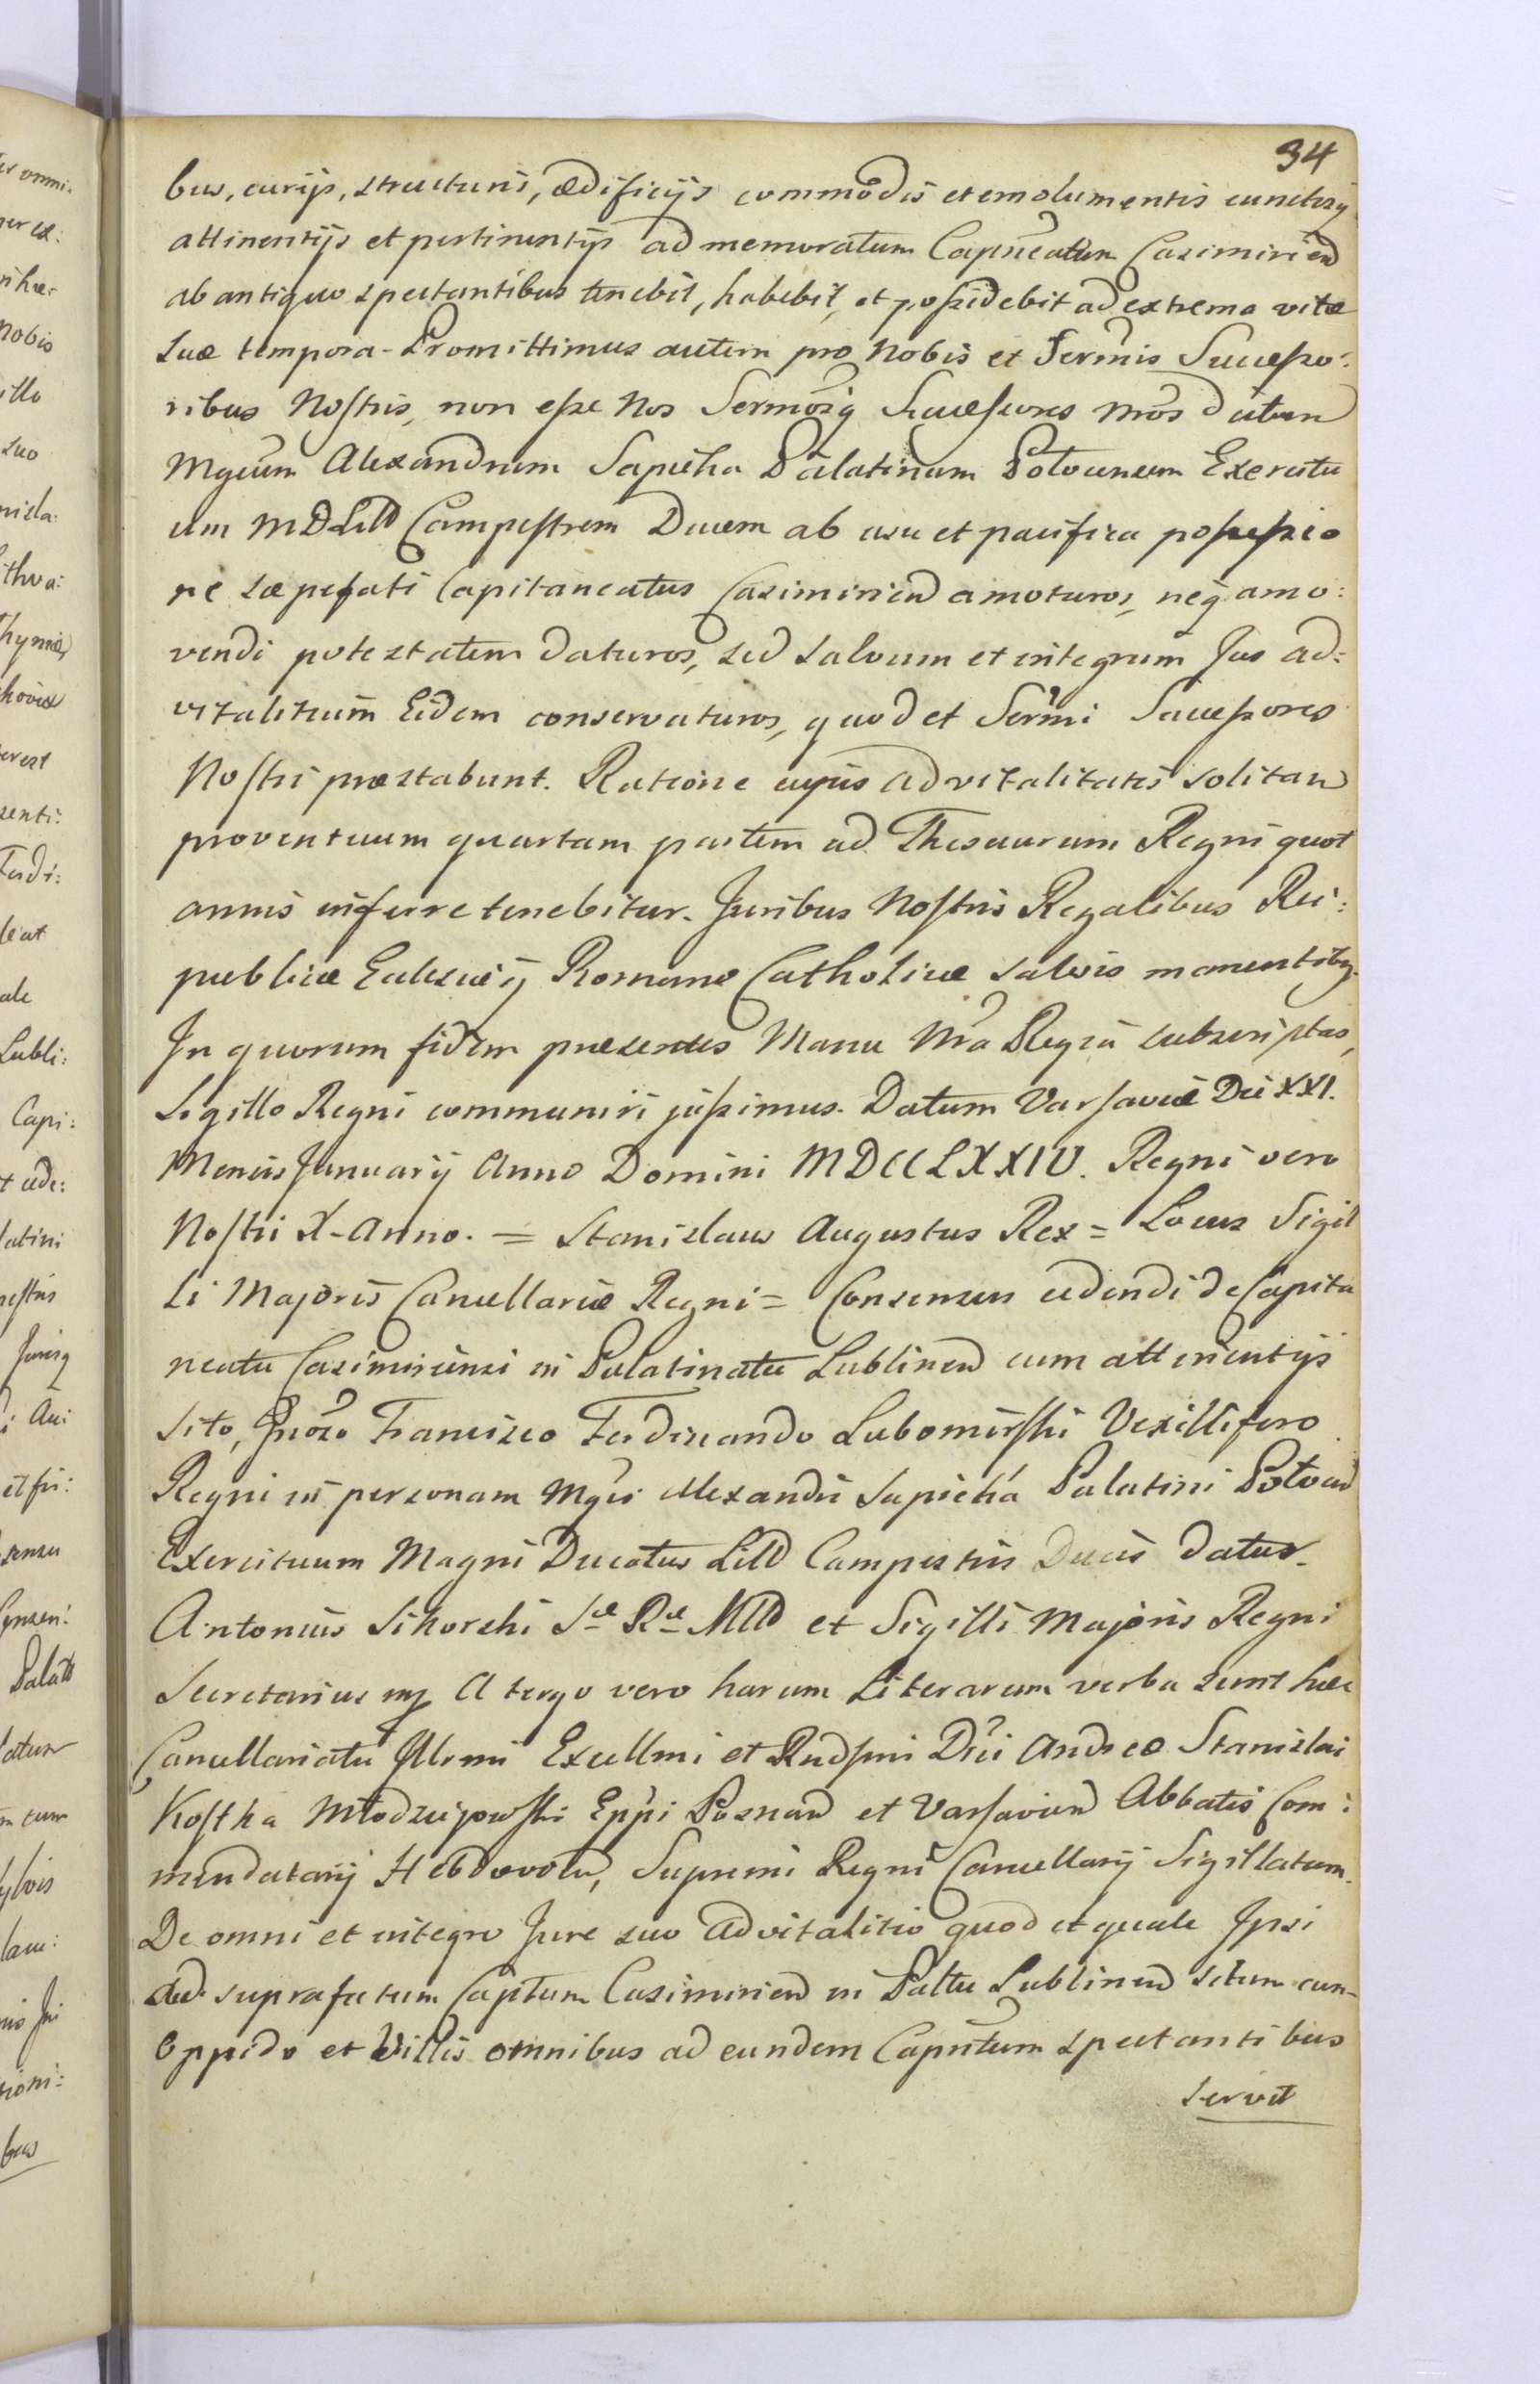 34
bus, curijs, structuris, ædificijs commodis et emolumentis cunctisq
attinentijs et pertinentijs ad memoratum Capneatum Casimirien
ab antiquo spectantibus tenebit, habebit, et possidebit ad extrema vitæ
suæ tempora - Promittimus autem pro Nobis et Sermis Successo:
ribus Nostris, non esse Nos Sermosq Successores Nros dictum
Mgcum Alexandrum Sapieha Palatinum Polocensem Exercitu
um MDLitt Campestrem Ducem ab usu et pacifica possessio
ne sæpefati Capitaneatus Casimirien amoturos, neq amo:
vendi potestatem daturos, sed salvum et integrum Jus ad=
vitalitium Eidem conservaturos, quod et Sermi Successores
Nostri præstabunt. Ratione cujus advitalitatis solitam
proventuum quartam partem ad Thesaurum Regni quot
annis inferre tenebitur. Juribus Nostris Regalibus Rei:
publicæ Eclesiæq Romanæ Catholicæ salvis manentibq.
In quorum fidem præsentes Manu Nra Regia subscriptas,
Sigillo Regni communiri jussimus. Datum Varsaviæ Die XXI.
Mensis Januarij Anno Domini MDCCLXXIV. Regni vero
Nostri X-Anno. = Stanislaus Augustus Rex = Locus Sigil
li Majoris Cancellariæ Regni = Consensus cedendi de Capita
neatu Casimiriensi in Palatinatu Lublinen cum attinentijs
sito, Gnoso Francisco Ferdinando Lubomirski Vexillifero
Regni in personam Mgci Alexandri Sapieha Palatini Polocen
Exercituum Magni Ducatus Litt Campestris Ducis datus.
Antonius Sikorski Sæ Ræ Mtt et Sigilli Majoris Regni
Secretarius mp A tergo vero harum Literarum verba sunt hæc
Cancellariatu Illrmi Excellmi et Rndsmi Dni Andreæ Stanislai
Kostka Młodziejowski Eppi Posnan et Varsavien Abbatis Com:
mendatarij Hebdovien, Supremi Regni Cancellarij Sigillatum.
De omni et integro Jure suo advitalitio quod et quale Ipsi
ad suprafatum Captum Casimirien in Paltu Lublinen situm cum
Oppido et Villis omnibus ad eundem Capntum spectantibus
servit